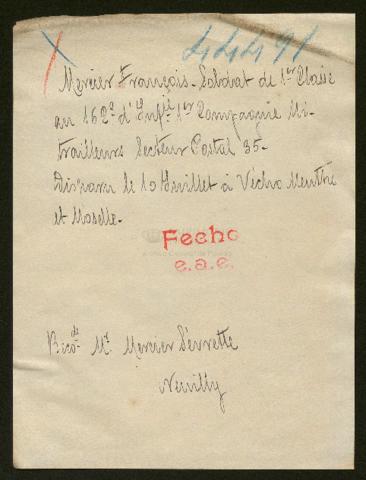 44491
Mercier François - Soldat de 1er Classe
au 162e d'Infie 1er Compagnie Mi-
trailleurs Secteur Postal 35-
Disparu le 10 Juillet à Vécho Meurthe
et Moselle-
Fecho
e.a.e.
Mr Mercier
Neuilly